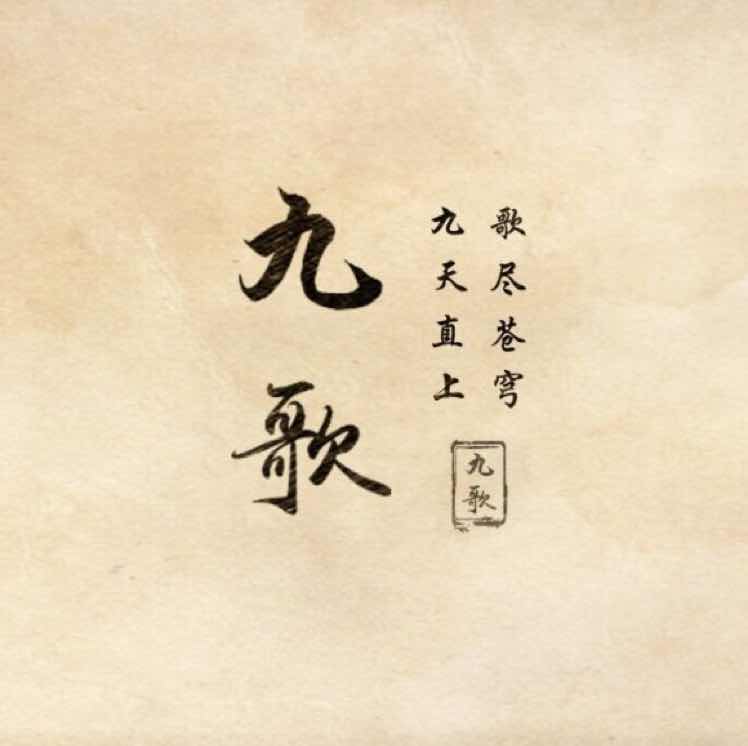 九歌
九天直上
歌尽苍穹
九歌